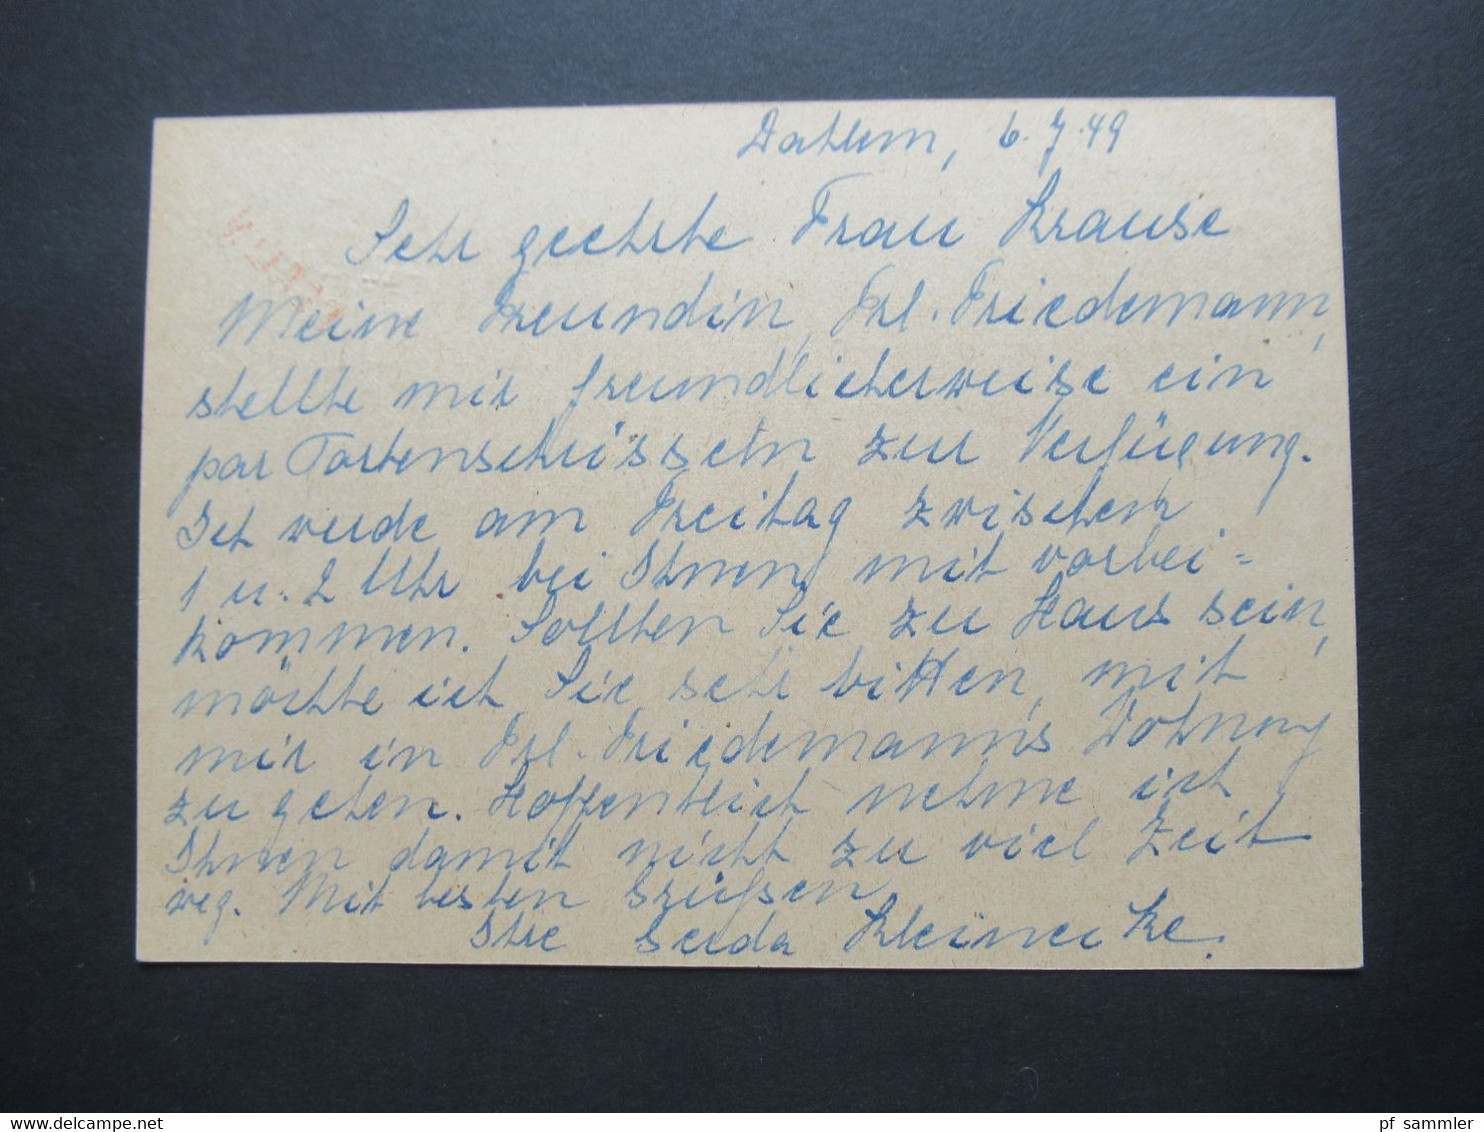 Dahlem, 6.7.49
Sehr geehrte Frau Krause
Meine Freundin, Frl. Friedemann,
stellte mir freundlicherweise ein
par Tortenschüsseln zur Verfügung.
Ich werde am Freitag zwischen
1 u. 2 Uhr bei Ihnen mit vorbei=
kommen. Sollten Sie zu Haus sein,
möchte ich Sie sehr bitten, mit
mir in Frl. Friedemanns Wohnung
zu gehen. Hoffentlich nehme ich
Ihnen damit nicht zu viel Zeit
weg. Mit besten Grüßen
Ihre Gerda Kleinecke.
www.delcampe.net
pf_sammler